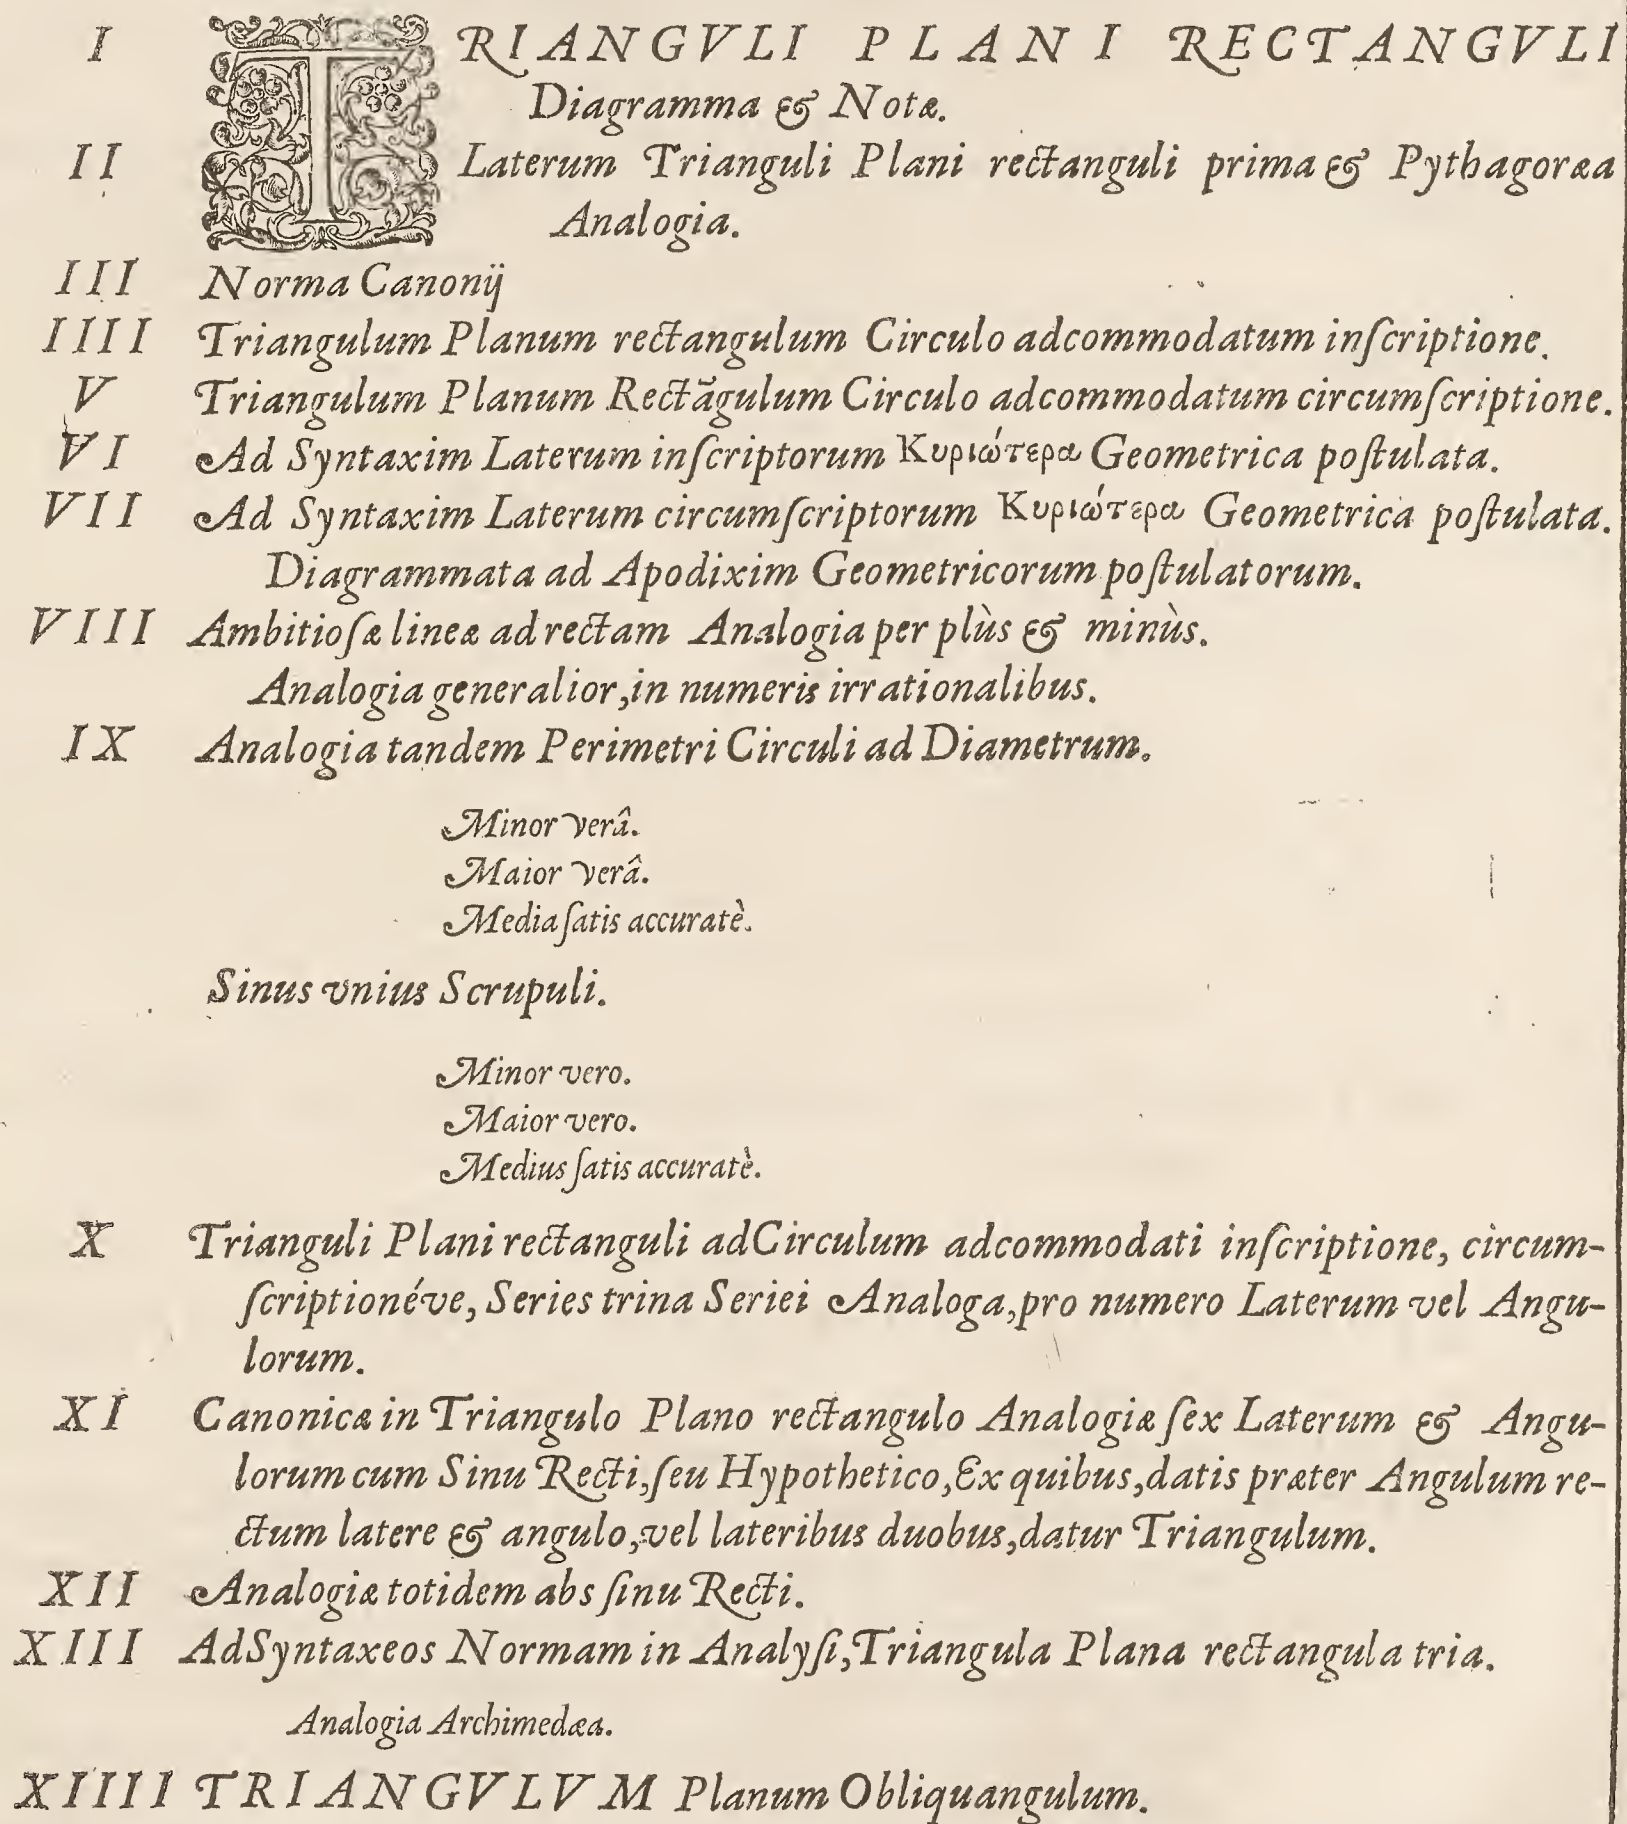 I TRIANGVLI PLANI RECTANGVLI
Diagramma & Notæ.
II Laterum Trianguli Plani rectanguli prima & Pythagoræa
Analogia.
III Norma Canonij
IIII Triangulum Planum rectangulum Circulo adcommodatum inſcriptione.
V Triangulum Planum Rectãgulum Circulo adcommodatum circumſcriptione.
VI Ad Syntaxim Laterum inſcriptorum Κυριώτερα Geometrica poſtulata.
VII Ad Syntaxim Laterum circumſcriptorum Κυριώτερα Geometrica poſtulata.
Diagrammata ad Apodixim Geometricorum poſtulatorum.
VIII Ambitioſæ lineæ ad rectam Analogia per plùs & minùs.
Analogia generalior, in numeris irrationalibus.
IX Analogia tandem Perimetri Circuli ad Diametrum.
Minor verâ.
Maior verâ.
Media ſatis accuratè.
Sinus vnius Scrupuli.
Minor vero.
Maior vero.
Medius ſatis accuratè.
X Trianguli Plani rectanguli ad Circulum adcommodati inſcriptione, circum-
ſcriptionéve, Series trina Seriei Analoga, pro numero Laterum vel Angu-
lorum.
XI Canonicæ in Triangulo Plano rectangulo Analogiæ ſex Laterum & Angu-
lorum cum Sinu Recti, ſeu Hypothetico, Ex quibus, datis præter Angulum re-
ctum latere & angulo, vel lateribus duobus, datur Triangulum.
XII Analogiæ totidem abs ſinu Recti.
XIII Ad Syntaxeos Normam in Analyſi, Triangula Plana rectangula tria.
Analogia Archimedæa.
XIIII TRIANGVLVM Planum Obliquangulum.